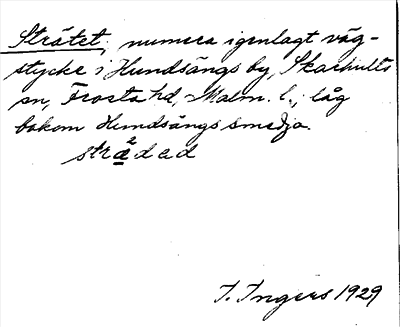 Strätet, numera igenlagt väg-
stycke i Hundsängs by, Skarhults
sn, Frosta hd, Malm. l., låg
bakom Hundsängs smedja.
strä²dad
I. Ingers 1929